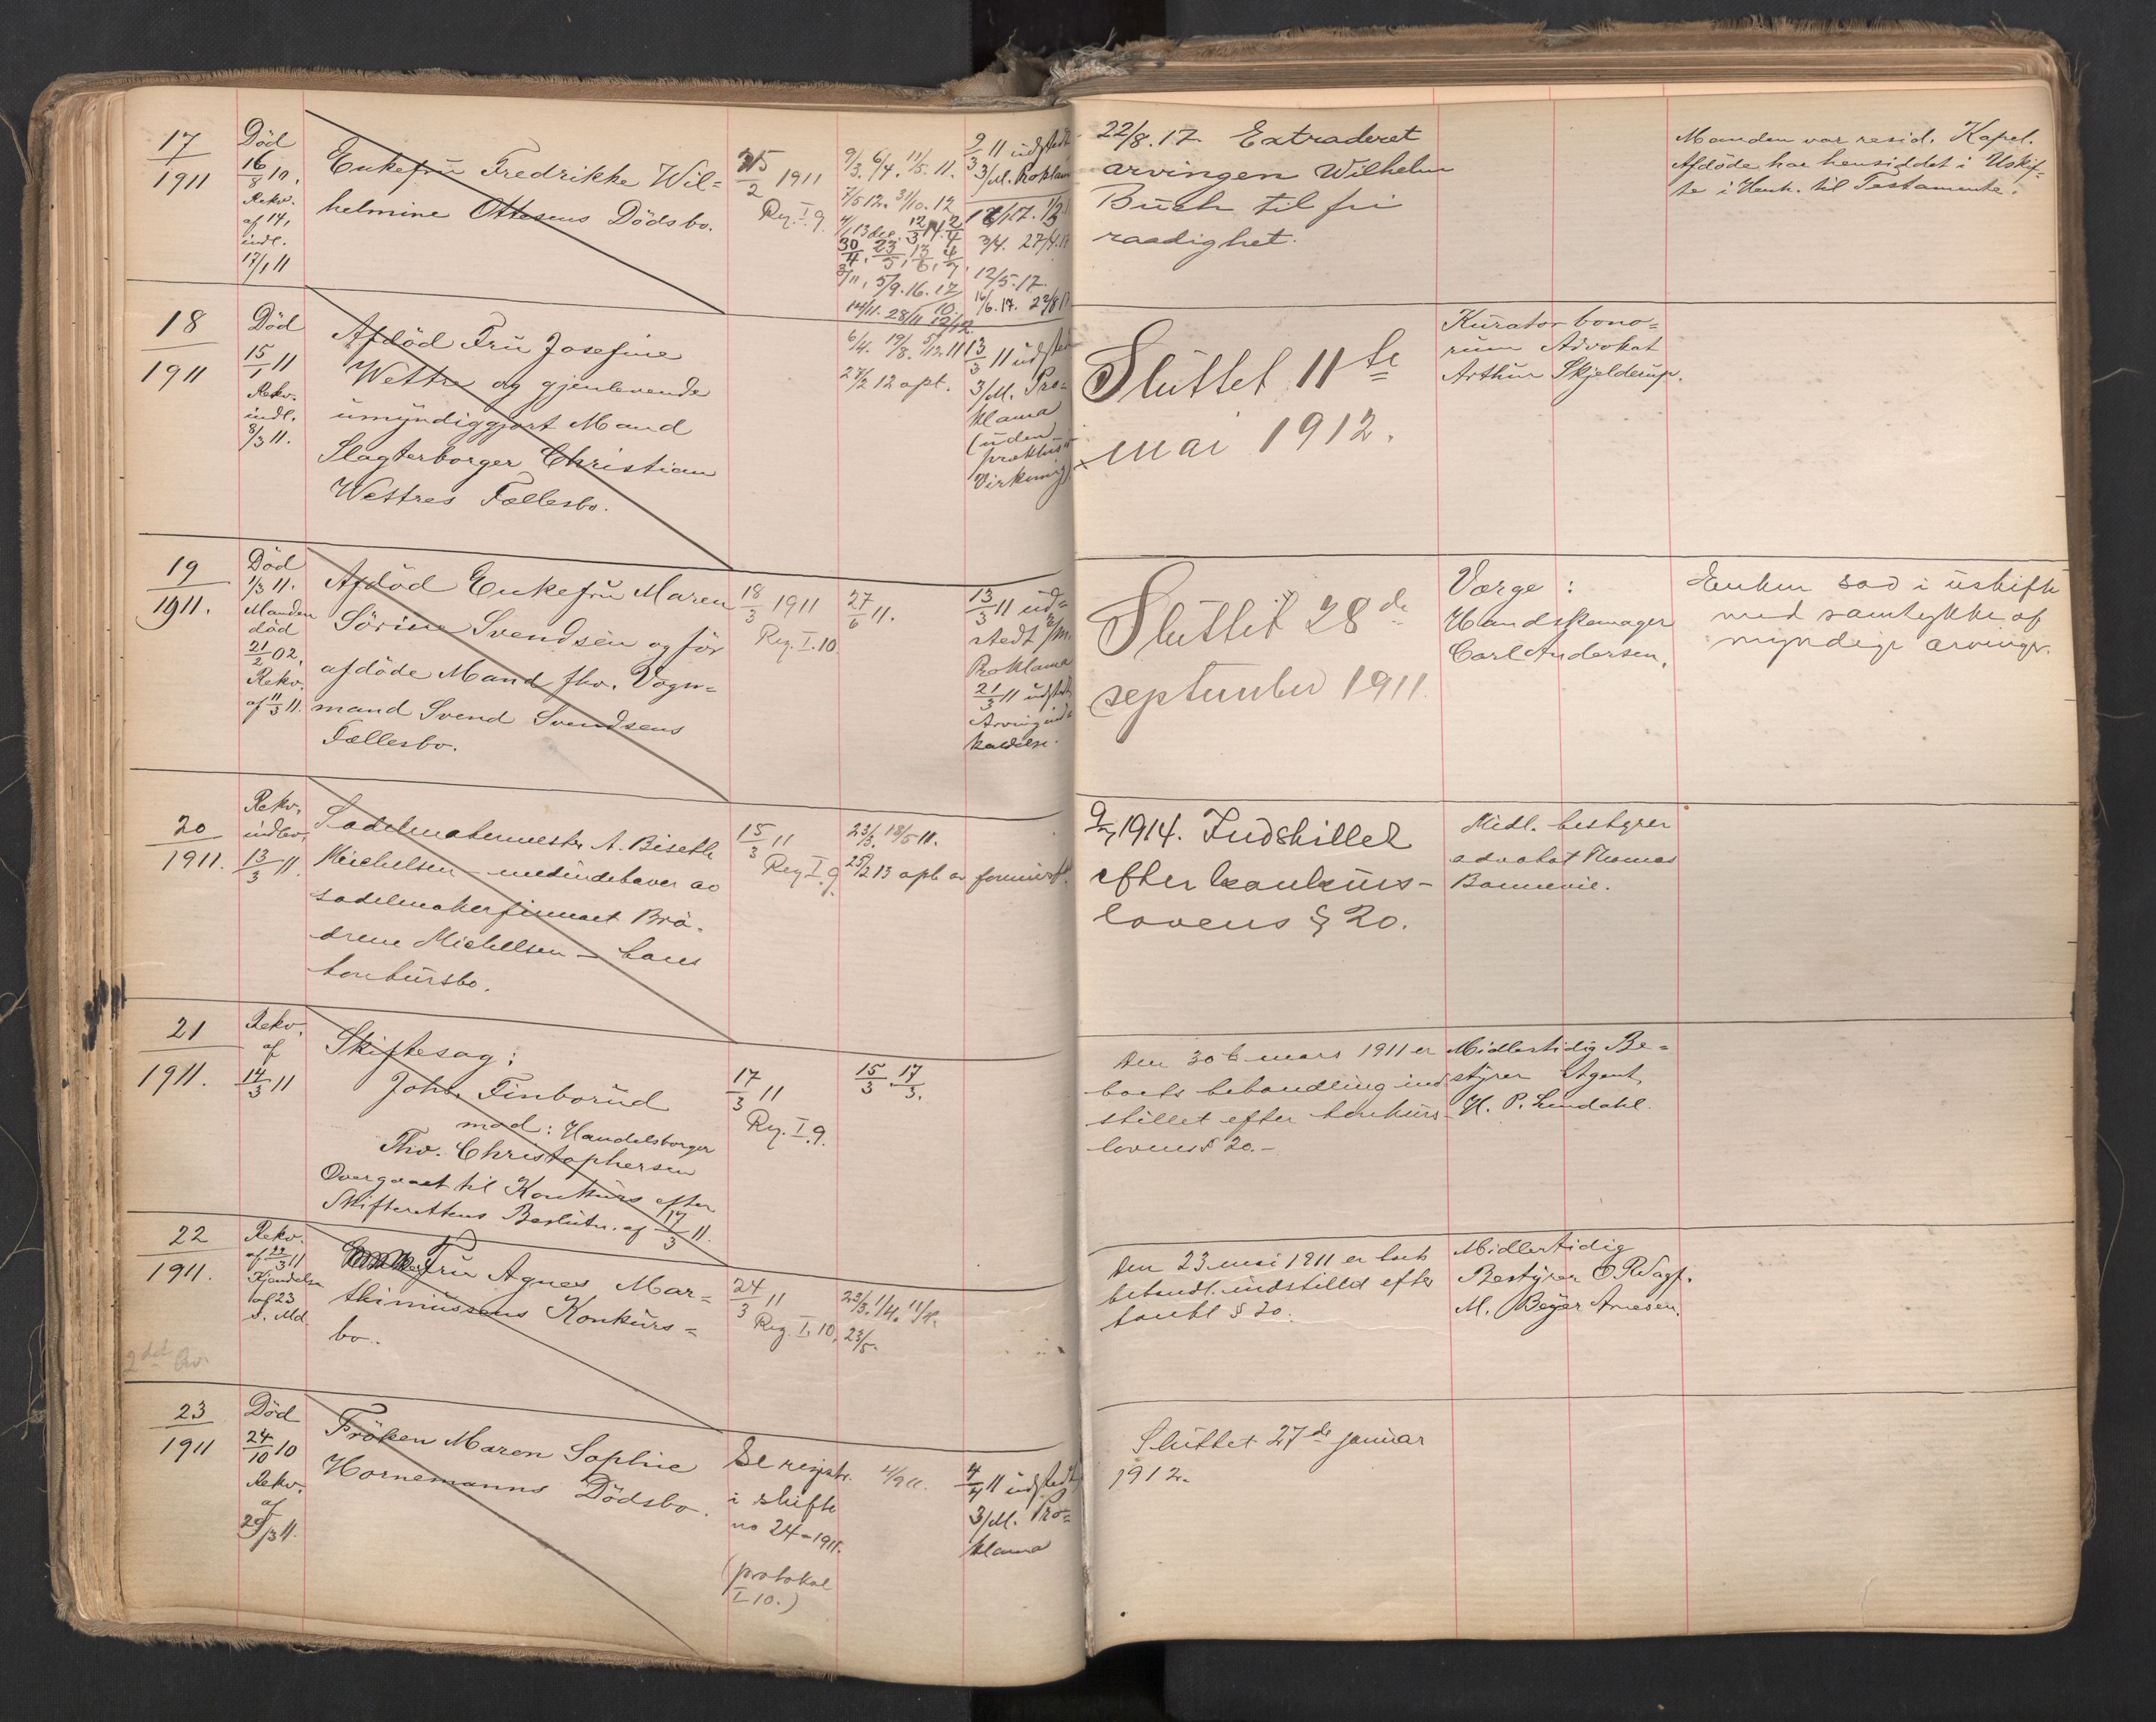 17
1911
Död
16/8 10.
Rekv.
af 14,
indl.
17/1 11
Enkefrü Fredrikke Wil=
helmine Ottesens Dödsbo.
2 1911
Reg. I. 9.
9/3. 6/4. 11/5. 11.
7/5 12. 31/10. 12
30/4, 23/5, 13/6, 4/7,
3/11, 5/9. 16.
14/11. 28/11 12/12.
9/3 11 üdstedt
3/M. Proklam
3/4. 27/4. 17
12/5. 17.
16/6. 17. 22/8 17
22/8. 17. Extraderet
arvingen Wilhelm
Büch til fri
raadighet.
Manden var resid. Kapel.
Afdöde har hensiddet i Uskif-
te i Henh. til Testamente.
18
1911
Död
15/1 11
Rekv.
indl.
8/3 11.
Afdöd Frü Josefine
Wettre og gjenlevende
ümÿndiggjort Mand
Slagterborger Christian
Wettres Fællesbo.
6/4. 19/8. 5/12. 11
27/2 12 opt.
13/3 11 üdstedt
3/M. Pro=
klama
(üden
præklüsiv
Virkning)
Slüttet 11te
mai 1912.
Kürator bono=
rüm Advokat
Arthür Skjelderüp.
19
1911.
Död
1/3 11.
Manden
död
21/2 02.
Rekv.
af 11/3 11.
Afdöd Enkefrü Maren
Sörine Svendsen og för
afdöde Mand fhv. Vogn=
mand Svend Svendsens
Fællesbo.
18/3 1911
Reg. I. 10
27/6 11.
13/3 11 üd=
stedt 3/m.
Proklama
21/3 11 üdstedt
Arvingind=
kaldelse.
Slüttet 28de
september 1911.
Værge :
Handskemager
Carl Andersen.
Enken sad i üskifte
med samtykke af
myndige arvinger.
20
1911.
Rekv.
indlev.
13/3 11.
Sadelmakermester A. Biseth
Michelsen – medindehaver av
sadelmakerfirmaet Brö-
drene Michelsen – hans
konkürsbo.
15/3 11
Reg I. 9.
23/3. 18/5 11.
25/2 13 opt av
9/7 1914. Indstillet
efter konkürs-
lovens § 20.
Midl. bestyrer
advokat Thomas
Bonnevie.
21
1911.
Rekv.
af
14/3 11
Skiftesag :
John Finborüd
mod: Handelsborger
Thv. Christophersen
Overgaaet til Konkürs efter
Skifterettens Beslütn. af 17/3 11.
17/3 11
Reg. I. 9.
15/3. 17/3.
Den 30te mars 1911 er
boets behandling ind-
stillet efter konkürs-
lovens § 20.-
Midlertidig Be=
stÿrer Agent
H. P. Lindahl.
22
1911.
Rekv.
af 22/3 11
Kjendelse
af 23
s. Md.
Frü Agnes Mar=
thinüssens Konkürs=
bo.
24/3 11
Reg. I. 10.
23/3. 1/4. 11/5.
23/5.
Den 23 mai 1911 er boets
behandl. indstilled efter
konkl § 20.
Midlertidig
Bestÿrer O.R.Sagf.
M. Beÿer Arnesen.
2det
23
1911
Död
24/10 10
Rekv.
af
29/3 11.
Fröken Maren Sophie
Hornemanns Dödsbo.
Se registr.
i skifte
no 24-1911.
(protokol
I 10.)
4/4 11 üdstedt
3/M. Pro=
klama
Slüttet 27de janüar
1912.